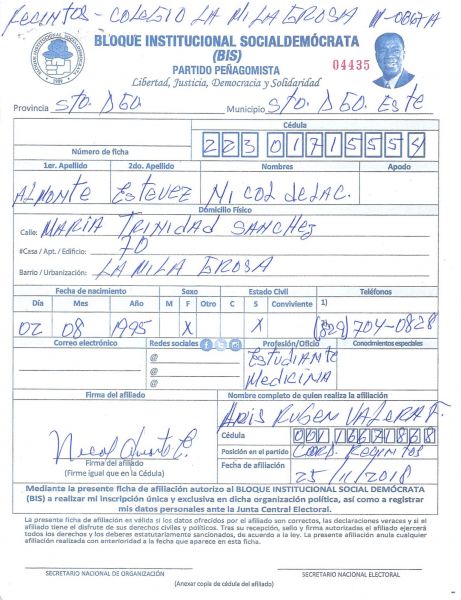 RECINTOS - COLEGIO LA MILAGROSA N-0867A
BLOQUE INSTITUCIONAL SOCIALDEMÓCRATA
(BIS)
PARTIDO PEÑAGOMISTA
04435
Libertad, Justicia, Democracia y Solidaridad
Provincia STO. DGO. Municipio STO. DGO. ESTE
Cédula
Número de ficha 22301715554
1er. Apellido 2do. Apellido Nombres Apodo
ALMONTE ESTEVEZ NICOL de LA C.
Domicilio Físico
Calle: MARIA TRINIDAD SANCHEZ
#Casa / Apt. / Edificio: 70
Barrio / Urbanización: LA MILAGROSA
Fecha de nacimiento Sexo Estado Civil Teléfonos
Día Mes Año M F Otro C S Conviviente 1)
02 08 1995 X X (829) 704-0828
Correo electrónico Redes sociales Profesión/Oficio Conocimientos especiales
@ ESTUDIANTE
@ MEDICINA
@
Firma del afiliado Nombre completo de quien realiza la afiliación
ARIS RUBEN VALERA F.
Cédula
Posición en el partido COORD. RECINTOS
Firma del afiliado
(Firme igual que en la Cédula)
Fecha de afiliación 25/11/2018
Mediante la presente ficha de afiliación autorizo al BLOQUE INSTITUCIONAL SOCIAL DEMÓCRATA
(BIS) a realizar mi inscripción única y exclusiva en dicha organización política, así como a registrar
mis datos personales ante la Junta Central Electoral.
La presente ficha de afiliación en válida si los datos ofrecidos por el afiliado son correctos, las declaraciones veraces y si el
afiliado tiene el disfrute de sus derechos civiles y políticos. Tras su recepción, sello y firma autorizadas el afiliado ejercerá
todos los derechos y los deberes estatutariamente sancionados, de acuerdo a la ley. La presente afiliación anula cualquier
afiliación realizada con anterioridad a la fecha que aparece en esta ficha.
SECRETARIO NACIONAL DE ORGANIZACIÓN SECRETARIO NACIONAL ELECTORAL
(Anexar copia de cédula del afiliado)